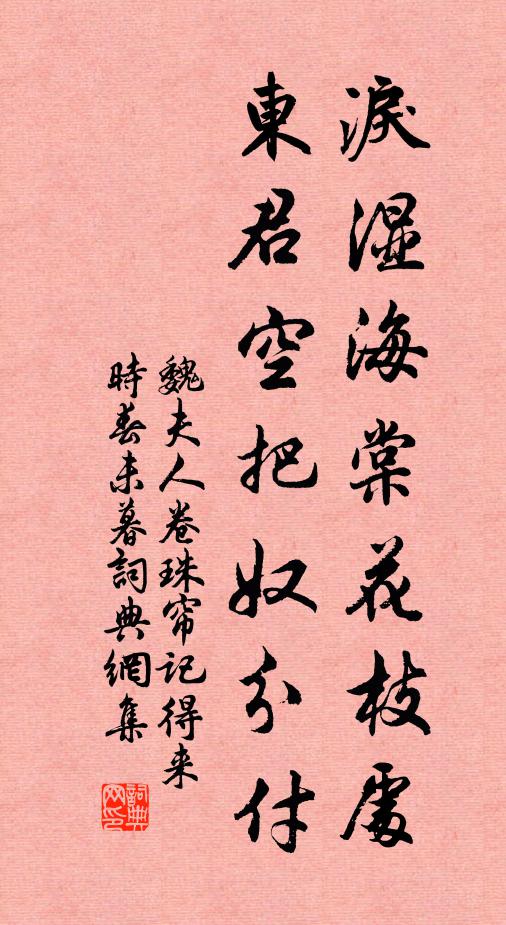 淚湿海棠花枝處
東君空把奴分付
魏夫人卷珠帘记得来
時春未暮詞典網集
詞典网印